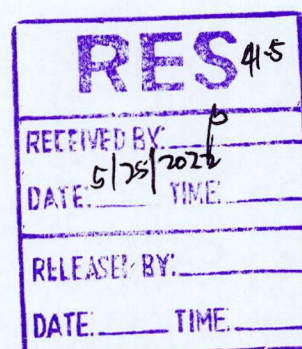 RES 41-5
RECEIVED BY:
DATE: 5/25/2022 TIME:
RELEASED BY:
DATE: TIME: